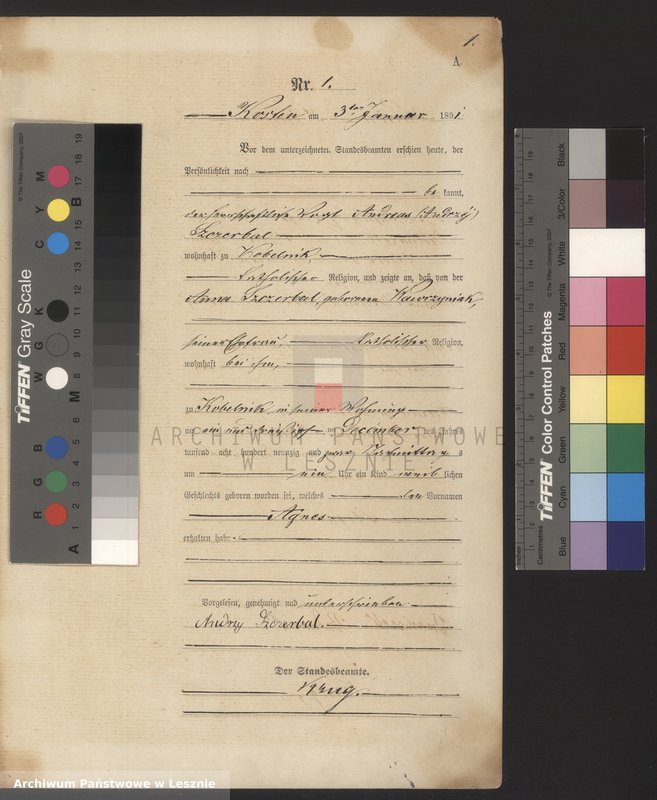 1.
A.
Nr. 1.
Kosten am 3ten Januar 1891
Vor dem unterzeichneten Standesbeamten erschien heute, der
Persönlichkeit nach
be kannt,
der herrschaftliche Vogt Andreas (Andrzej)
Szczerbal
wohnhaft zu Kobelnik
katholischer Religion, und zeigte an, daß von der
Anna Szczerbal, geborenen Wawrzyniak,
seiner Ehefrau,
katholischer Religion,
wohnhaft bei ihm,
zu Kobelnik in seiner Wohnung
am ein und dreißigsten December des Jahres
tausend acht hundert neunzig und zwar Vormittags
um ein Uhr ein Kind weib lichen
Geschlechts geboren worden sei, welches den Vornamen
Agnes
erhalten habe.
Vorgelesen, genehmigt und unterschrieben
Andrzej Szczerbal.
Der Standesbeamte.
Krug.
ARCHIWUM PAŃSTWOWE
W LESZNIE
Archiwum Państwowe w Lesznie
TIFFEN Gray Scale
© The Tiffen Company, 2007
R G B W G K C Y M
A 1 2 3 4 5 6 M 8 9 10 11 12 13 14 15 B 17 18 19
TIFFEN Color Control Patches
© The Tiffen Company, 2007
Blue
Cyan
Green
Yellow
Red
Magenta
White
3/Color
Black
Inches
Centimetres